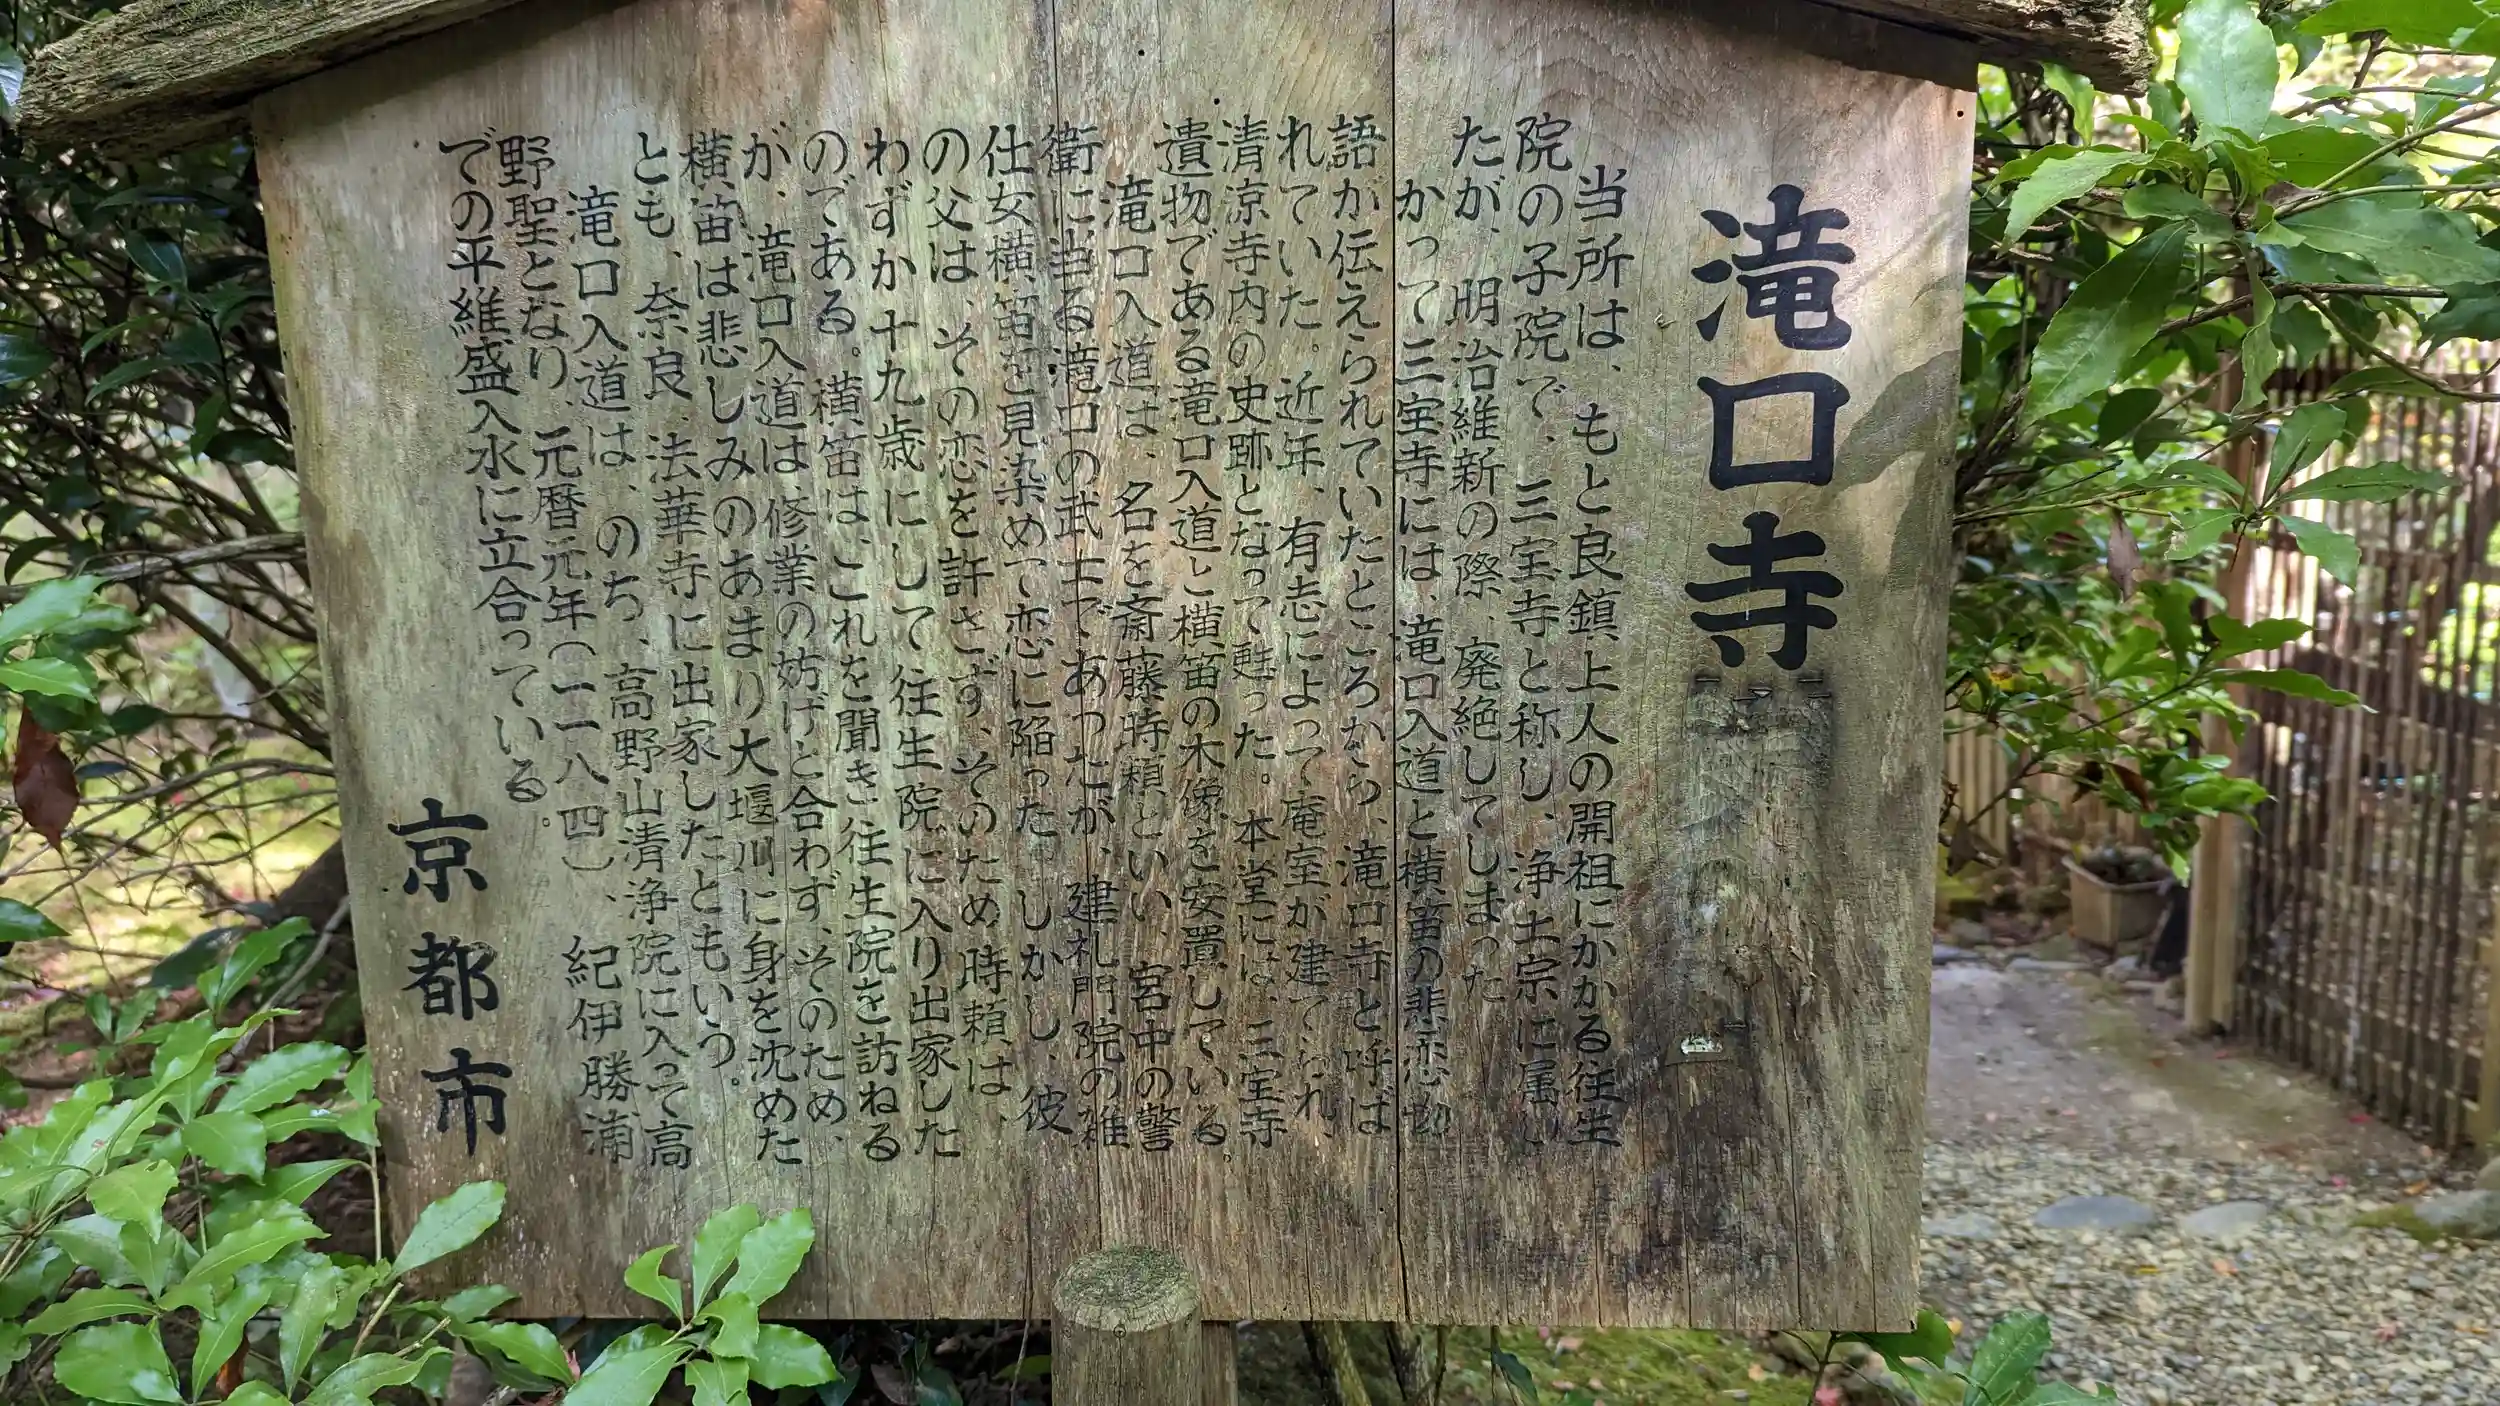 滝口寺
当所は、もと良鎮上人の開祖にかかる往生
院の子院で、三宝寺と称し、浄土宗に属い
たが、明治維新の際、廃絶してしまった。
かって三宝寺には、滝口入道と横笛の悲恋物
語が伝えられていたところから、滝口寺と呼ば
れていた。近年、有志によって庵室が建てられ、
清涼寺内の史跡となって甦った。本堂には、三宝寺
遺物である滝口入道と横笛の木像を安置している。
滝口入道は、名を斎藤時頼といい、宮中の警
衛に当る滝口の武士であったが、建礼門院の雑
仕女横笛を見染めて恋に陥った。しかし、彼
の父は、その恋を許さず、そのため時頼は、
わずか十九歳にして往生院に入り出家した
のである。横笛は、これを聞き往生院を訪ねる
が、滝口入道は、修業の妨げと合わず、そのため、
横笛は悲しみのあまり大堰川に身を沈めた
とも、奈良、法華寺に出家したともいう。
滝口入道は、のち、高野山清浄院に入って高
野聖となり、元暦元年(一一八四)、紀伊勝浦
での平維盛入水に立合っている。
京都市